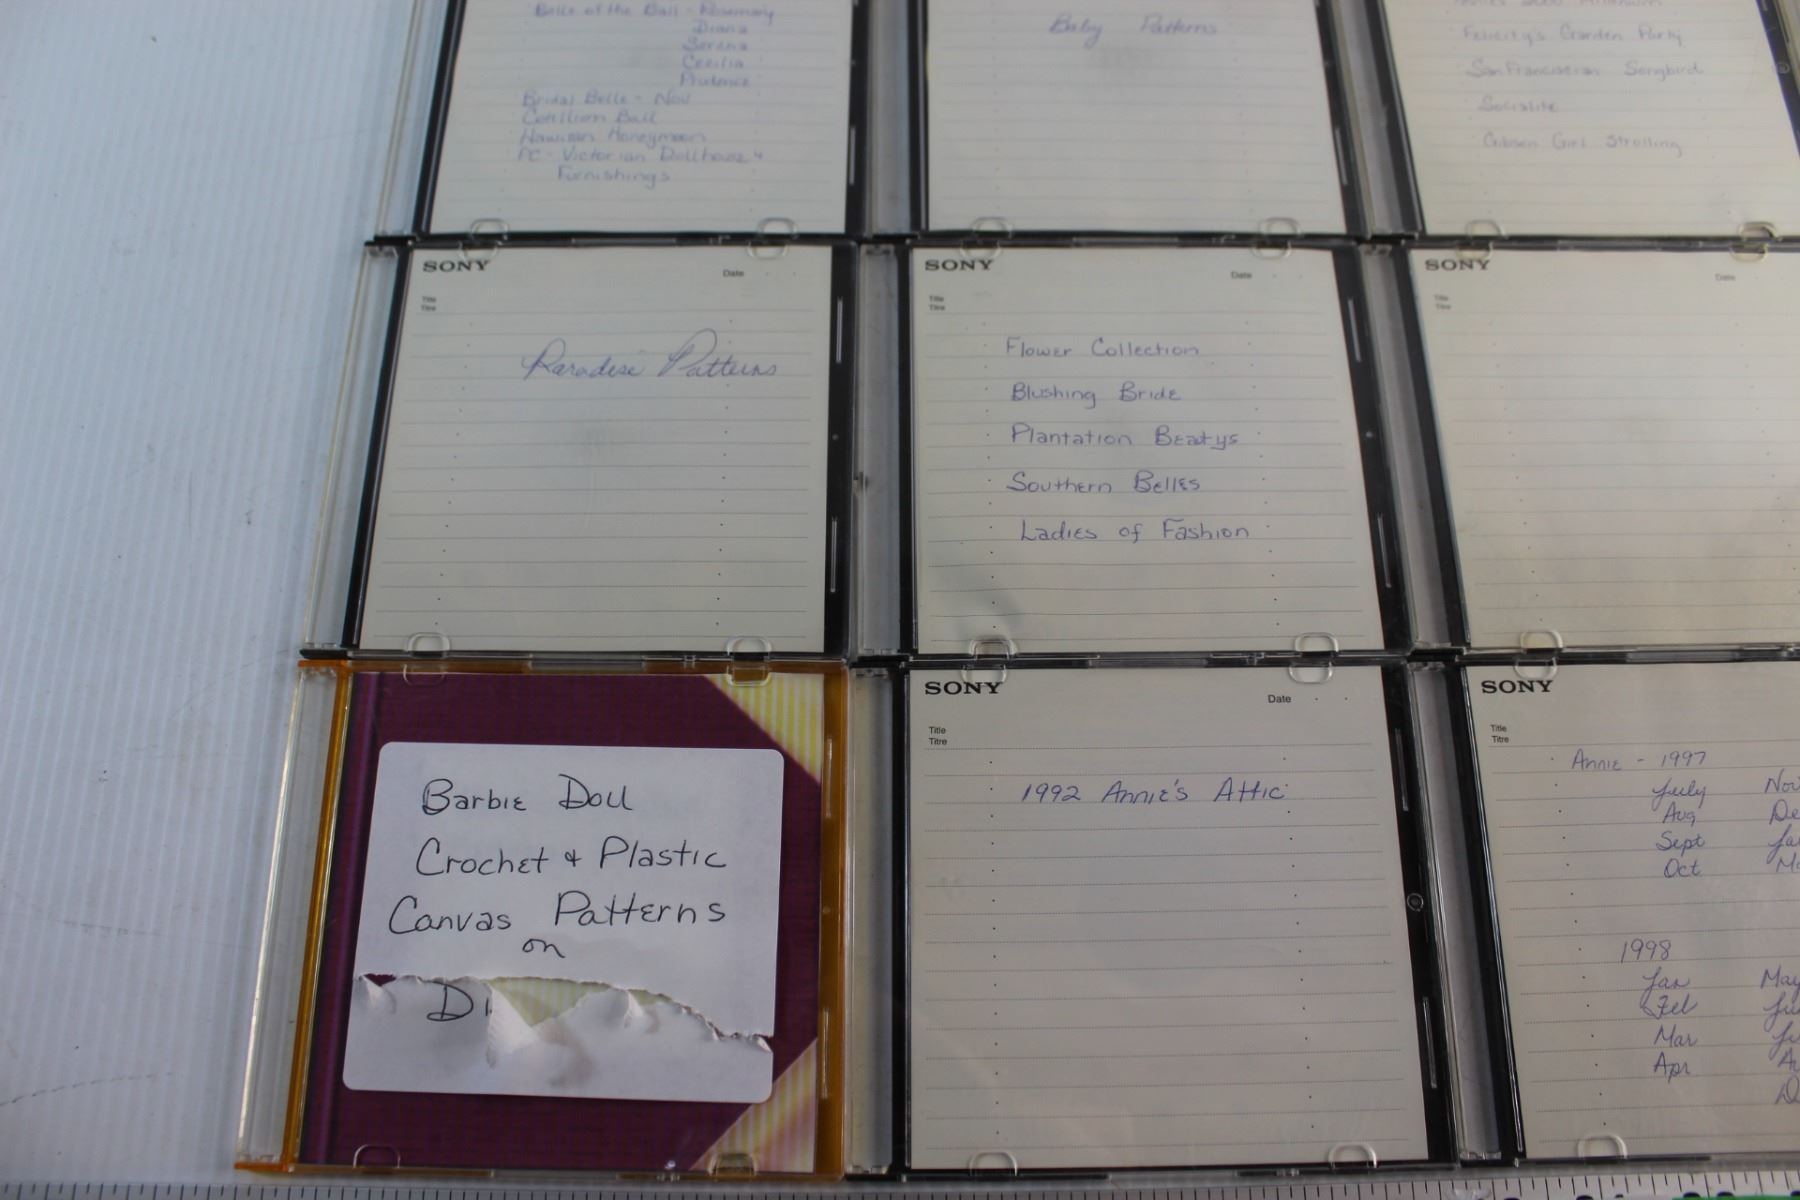 Belle of the Ball - Rosemary
Diana
Serena
Cecilia
Prudence
Bridal Belle - Nov
Cotillion Ball
Hawiian Honeymoon
PC - Victorian Dollhouse &
Furnishings
Baby Patterns
Felicity's Garden Party
San Franciscan Songbird
Socialite
Gibson Girl Strolling
SONY
Date
Title
Titre
Paradise Patterns
SONY
Date
Title
Titre
Flower Collection
Blushing Bride
Plantation Beatys
Southern Belles
Ladies of Fashion
SONY
Date
Title
Titre
Barbie Doll
Crochet & Plastic
Canvas Patterns
on
Di
SONY
Date
Title
Titre
1992 Annie's Attic
SONY
Title
Titre
Annie - 1997
July Nov
Aug De
Sept Ja
Oct Ma
1998
Jan May
Feb Ju
Mar Ju
Apr Au